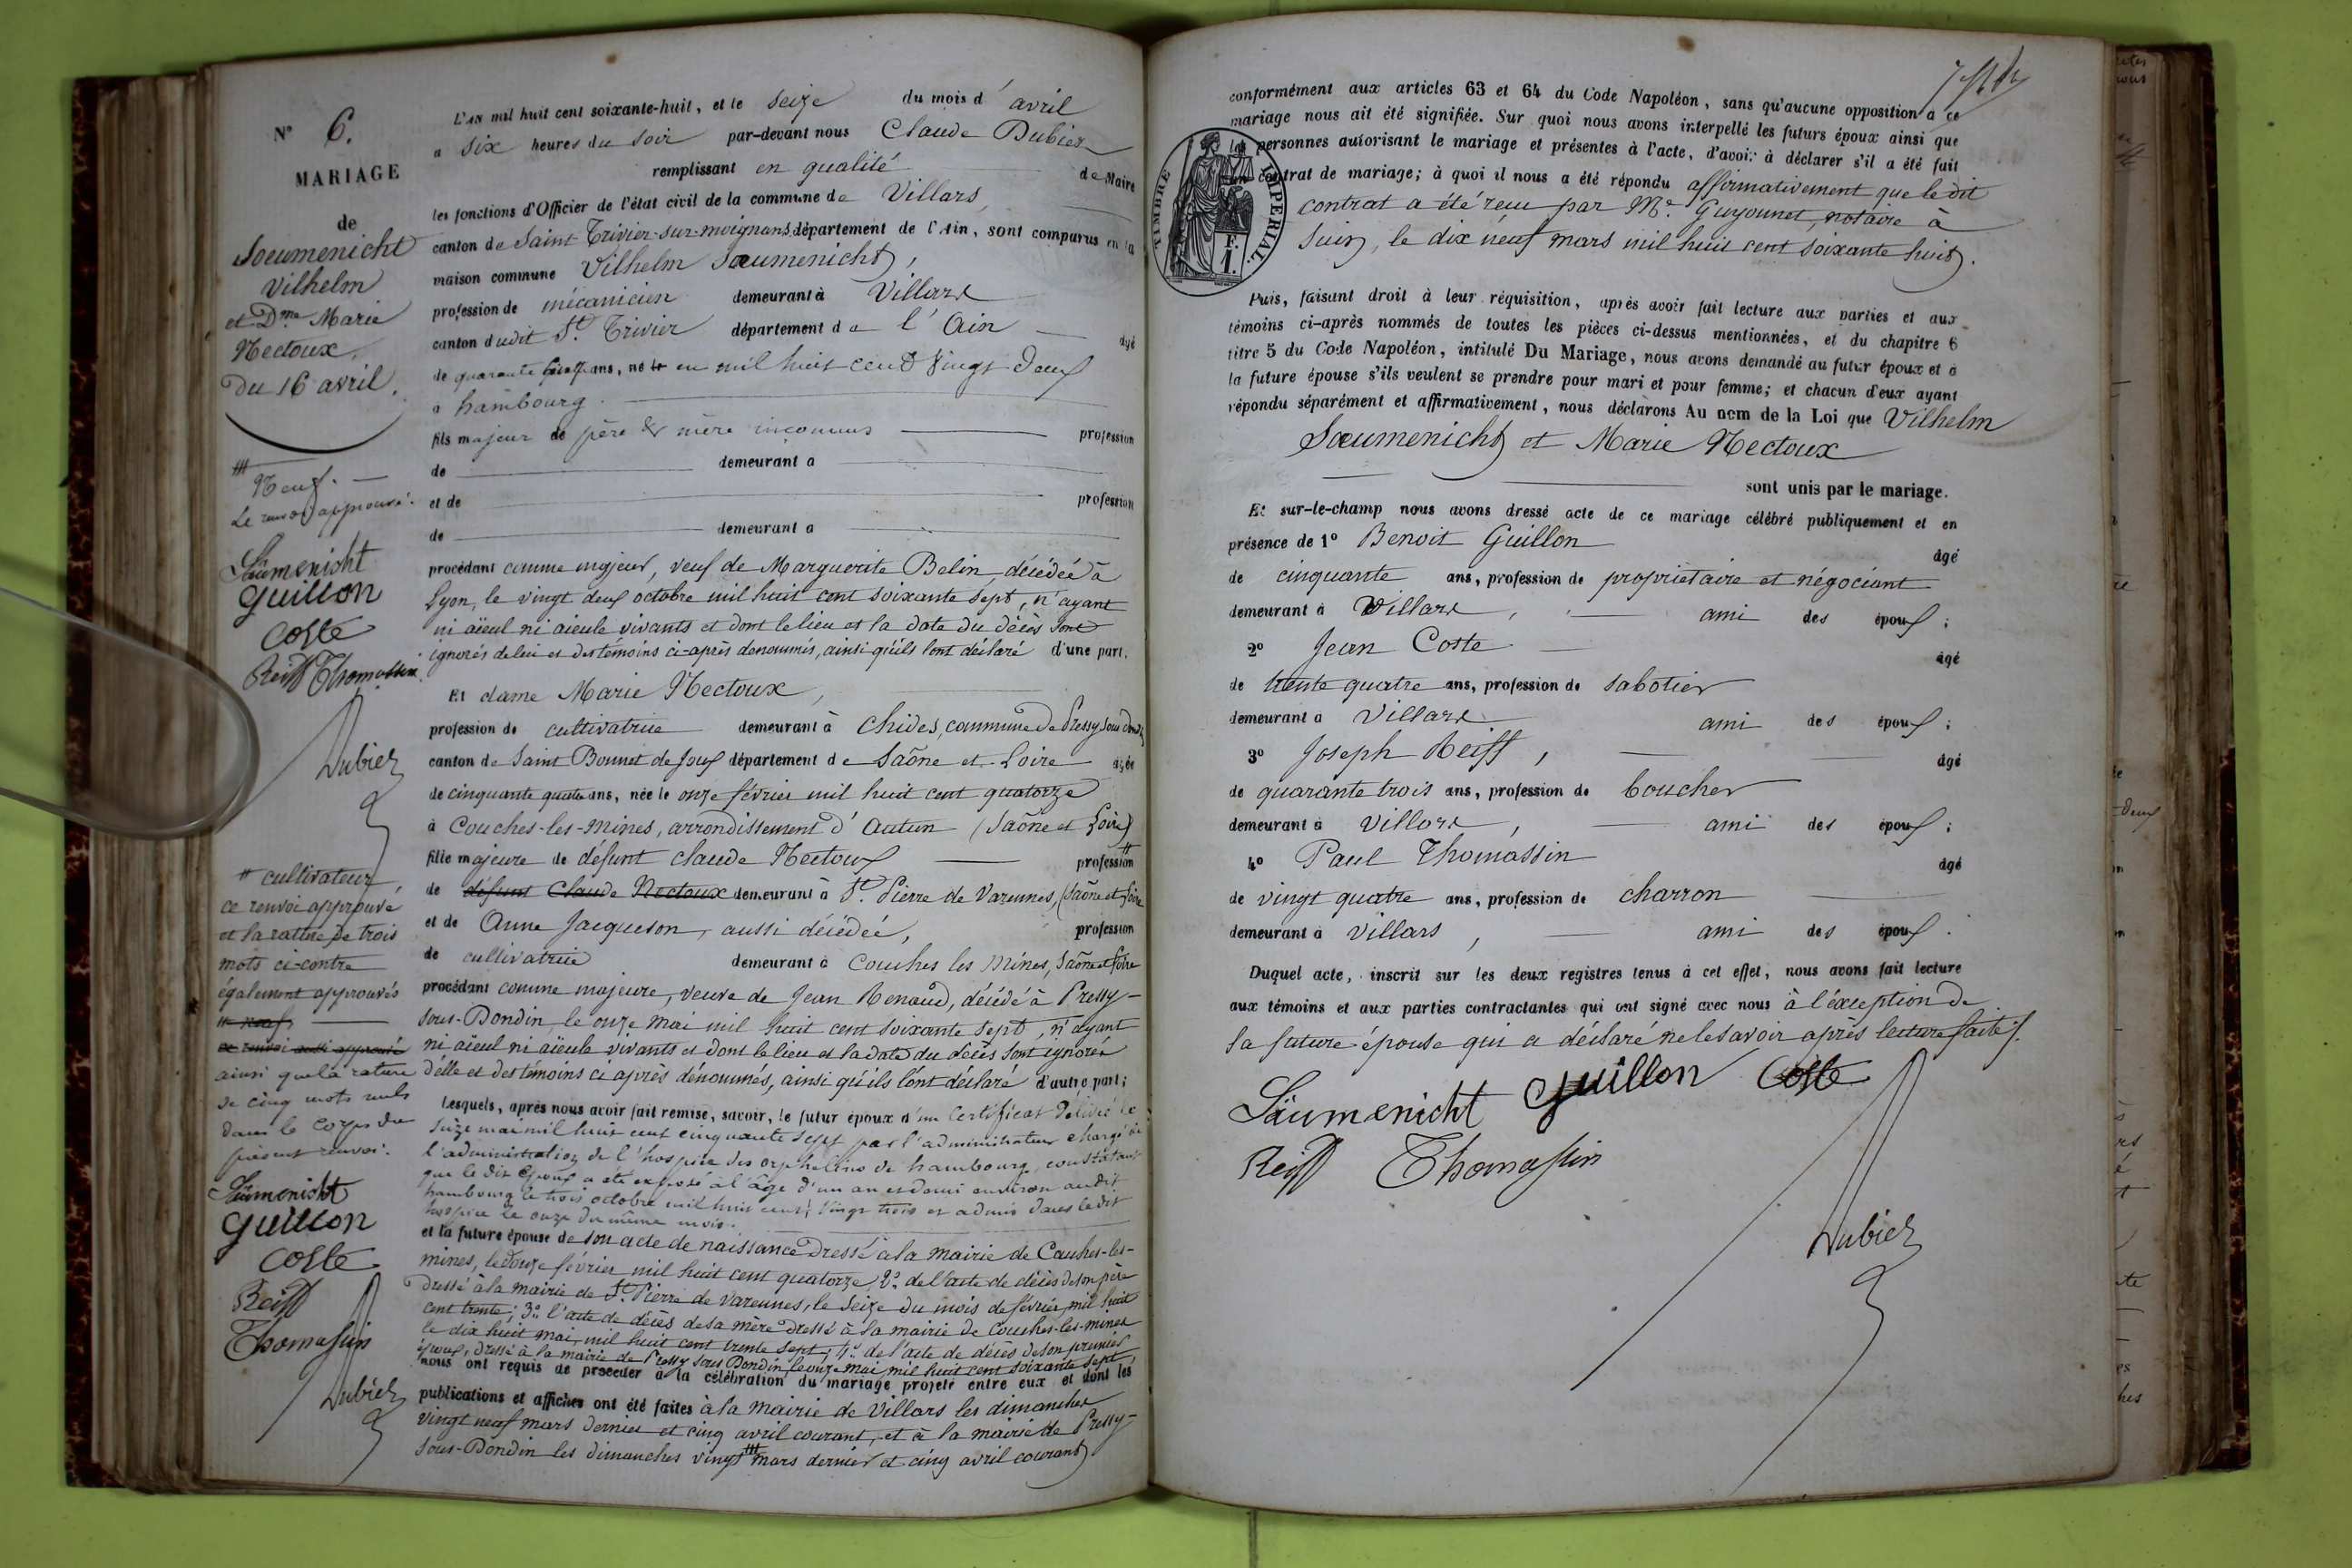 N° 6.
MARIAGE
de
Soeumenicht
Vilhelm
et Dme Marie
Nectoux.
Du 16 avril.
Neuf. —
Le renvoi approuvé.
Säumenicht
Guillon
Coste
Reiff Thomassin
Dubiez
# cultivateur,
ce renvoi approuvé
et la rature de trois
mots ci-contre
également approuvés
ce renvoi aussi approuvé
ainsi que la rature
de cinq mots nuls
dans le corps du
présent renvoi.
Säumenicht
Guillon
Coste
Reiff
Thomassin
Dubiez
L'an mil huit cent soixante-huit, et le seize du mois d'avril
a six heures du soir par-devant nous Claude Dubiez
remplissant en qualité de Maire
les fonctions d'Officier de l'état civil de la commune de Villars,
canton de Saint-Trivier-sur-moignans, département de l'Ain, sont comparus en la
maison commune Vilhelm Soeumenicht,
profession de mécanicien demeurant à Villars
canton dudit St. Trivier département de l'Ain âgé
de quarante ans, né en mil huit cent vingt deux
a hambourg.
fils majeur de père & mère inconnus profession
de demeurant a
et de profession
de demeurant a
procédant comme majeur, veuf de Marguerite Belin, décédée à
Lyon, le vingt deux octobre mil huit cent soixante sept, n'ayant
ni aïeul ni aïeule vivants et dont le lieu et la date du décès sont
ignorés de lui et des témoins ci-après dénommés, ainsi qu'ils l'ont déclaré d'une part.
Et dame Marie Nectoux,
profession de cultivatrice demeurant à Chides, commune de Pressy sous dondin
canton de Saint Bonnet de Joux département de Saône et Loire âgée
de cinquante quatre ans, née le onze février mil huit cent quatorze
à Couches-les-mines, arrondissement d'Autun (Saône et Loire)
fille majeure de défunt claude Nectoux profession
de défunt Claude Nectoux demeurant à St. Pierre de Varennes, (Saône et Loire
et de Anne Jacqueson, aussi décédée, profession
de cultivatrice demeurant à Couches les Mines, Saône et Loire
procédant comme majeure, veuve de Jean Renaud, décédé à Pressy-
sous-Dondin, le onze mai mil huit cent soixante sept, n'ayant
ni aïeul ni aïeule vivants et dont le lieu et la date du décès sont ignorés
d'elle et des témoins ci après dénommés, ainsi qu'ils l'ont déclaré d'autre part;
Lesquels, après nous avoir fait remise, savoir, le futur époux d'un Certificat délivré le
seize mai mil huit cent cinquante sept par l'administrateur chargé de
l'administration de l'hospice des orphelins de hambourg, constatant
que le dit Epoux a été exposé à l'âge d'un an et demi environ audit
hambourg le trois octobre mil huit cent vingt trois et admis dans le dit
hospice le onze du même mois.
et la future épouse de son acte de naissance dressé à la mairie de Couches-les-
mines, le douze février mil huit cent quatorze 2°. de l'acte de décès de son père
dressé à la mairie de St. Pierre de Varennes, le seize du mois de février, mil huit
cent trente; 3°. l'acte de décès de sa mère dressé à la mairie de Couches-les-mines
le dix huit mai, mil huit cent trente sept; 4°. de l'acte de décès de son premier
époux, dressé à la mairie de Pressy sous Dondin, le onze mai mil huit cent soixante sept
nous ont requis de procéder à la célébration du mariage projeté entre eux et dont les
publications et affiches ont été faites à la mairie de Villars les dimanches
vingt neuf mars dernier et cinq avril courant, et à la mairie de Pressy-
sous-Dondin les dimanches vingt mars dernier et cinq avril courant
conformément aux articles 63 et 64 du Code Napoléon, sans qu'aucune opposition a ce
mariage nous ait été signifiée. Sur quoi nous avons interpellé les futurs époux ainsi que
les personnes autorisant le mariage et présentes à l'acte, d'avoir à déclarer s'il a été fait
un contrat de mariage; à quoi il nous a été répondu affirmativement que le dit
contrat a été reçu par Me. Guyonnet, notaire à
Suin, le dix neuf mars mil huit cent soixante huit.
TIMBRE IMPERIAL
Puis, faisant droit à leur réquisition, après avoir fait lecture aux parties et aux
témoins ci-après nommés de toutes les pièces ci-dessus mentionnées, et du chapitre 6
titre 5 du Code Napoléon, intitulé Du Mariage, nous avons demandé au futur époux et à
la future épouse s'ils veulent se prendre pour mari et pour femme; et chacun d'eux ayant
répondu séparément et affirmativement, nous déclarons Au nom de la Loi que Vilhelm
Soeumenicht et Marie Nectoux
sont unis par le mariage.
Et sur-le-champ nous avons dressé acte de ce mariage célébré publiquement et en
présence de 1° Benoit Guillon âgé
de cinquante ans, profession de propriétaire et négociant
demeurant à Villars, ami des époux;
2° Jean Coste âgé
de trente quatre ans, profession de sabotier
demeurant a Villars ami des époux;
3° Joseph Reiff, âgé
de quarante trois ans, profession de boucher
demeurant à Villars, ami des époux;
4° Paul Thomassin âgé
de vingt quatre ans, profession de charron
demeurant à Villars, ami des époux.
Duquel acte, inscrit sur les deux registres tenus à cet effet, nous avons fait lecture
aux témoins et aux parties contractantes qui ont signé avec nous à l'exception de
la future épouse qui a déclaré ne le savoir après lecture faite.
Säumenicht Guillon Coste
Reiff Thomassin
Dubiez